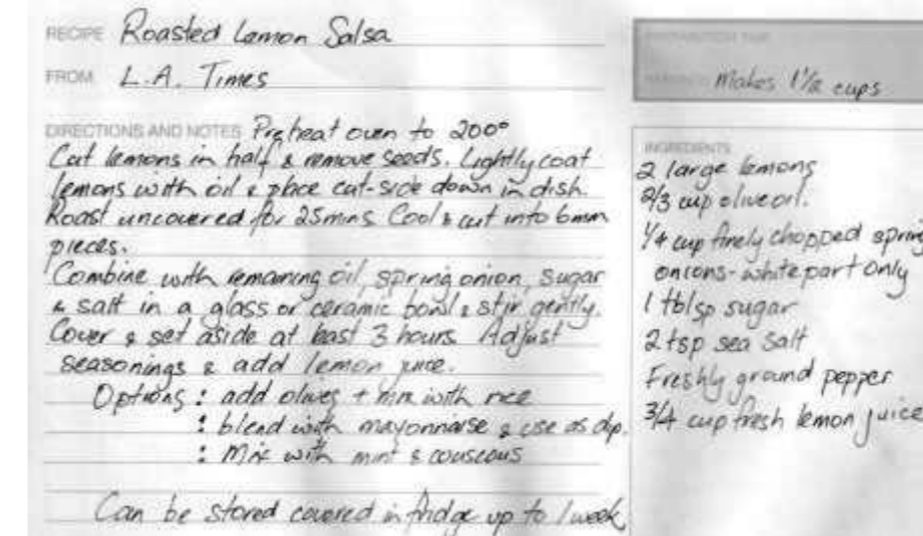 RECIPE Roasted Lemon Salsa
FROM L.A. Times
DIRECTIONS AND NOTES Preheat oven to 200°
Cut lemons in half & remove seeds. Lightly coat
lemons with oil & place cut-side down in dish.
Roast uncovered for 25mins Cool & cut into 6mm
pieces.
Combine with remaining oil, spring onion, sugar
& salt in a glass or ceramic bowl & stir gently.
Cover & set aside at least 3 hours Adjust
seasonings & add lemon juice.
Options : add olives + mix with rice
: blend with mayonnaise & use as dip.
: Mix with mint & couscous
Can be stored covered in fridge up to 1 week
PREPARATION TIME
Makes 1½ cups
INGREDIENTS
2 large lemons
2/3 cup olive oil.
1/4 cup finely chopped spring
onions - white part only
1 tblsp sugar
2 tsp sea salt
Freshly ground pepper
3/4 cup fresh lemon juice